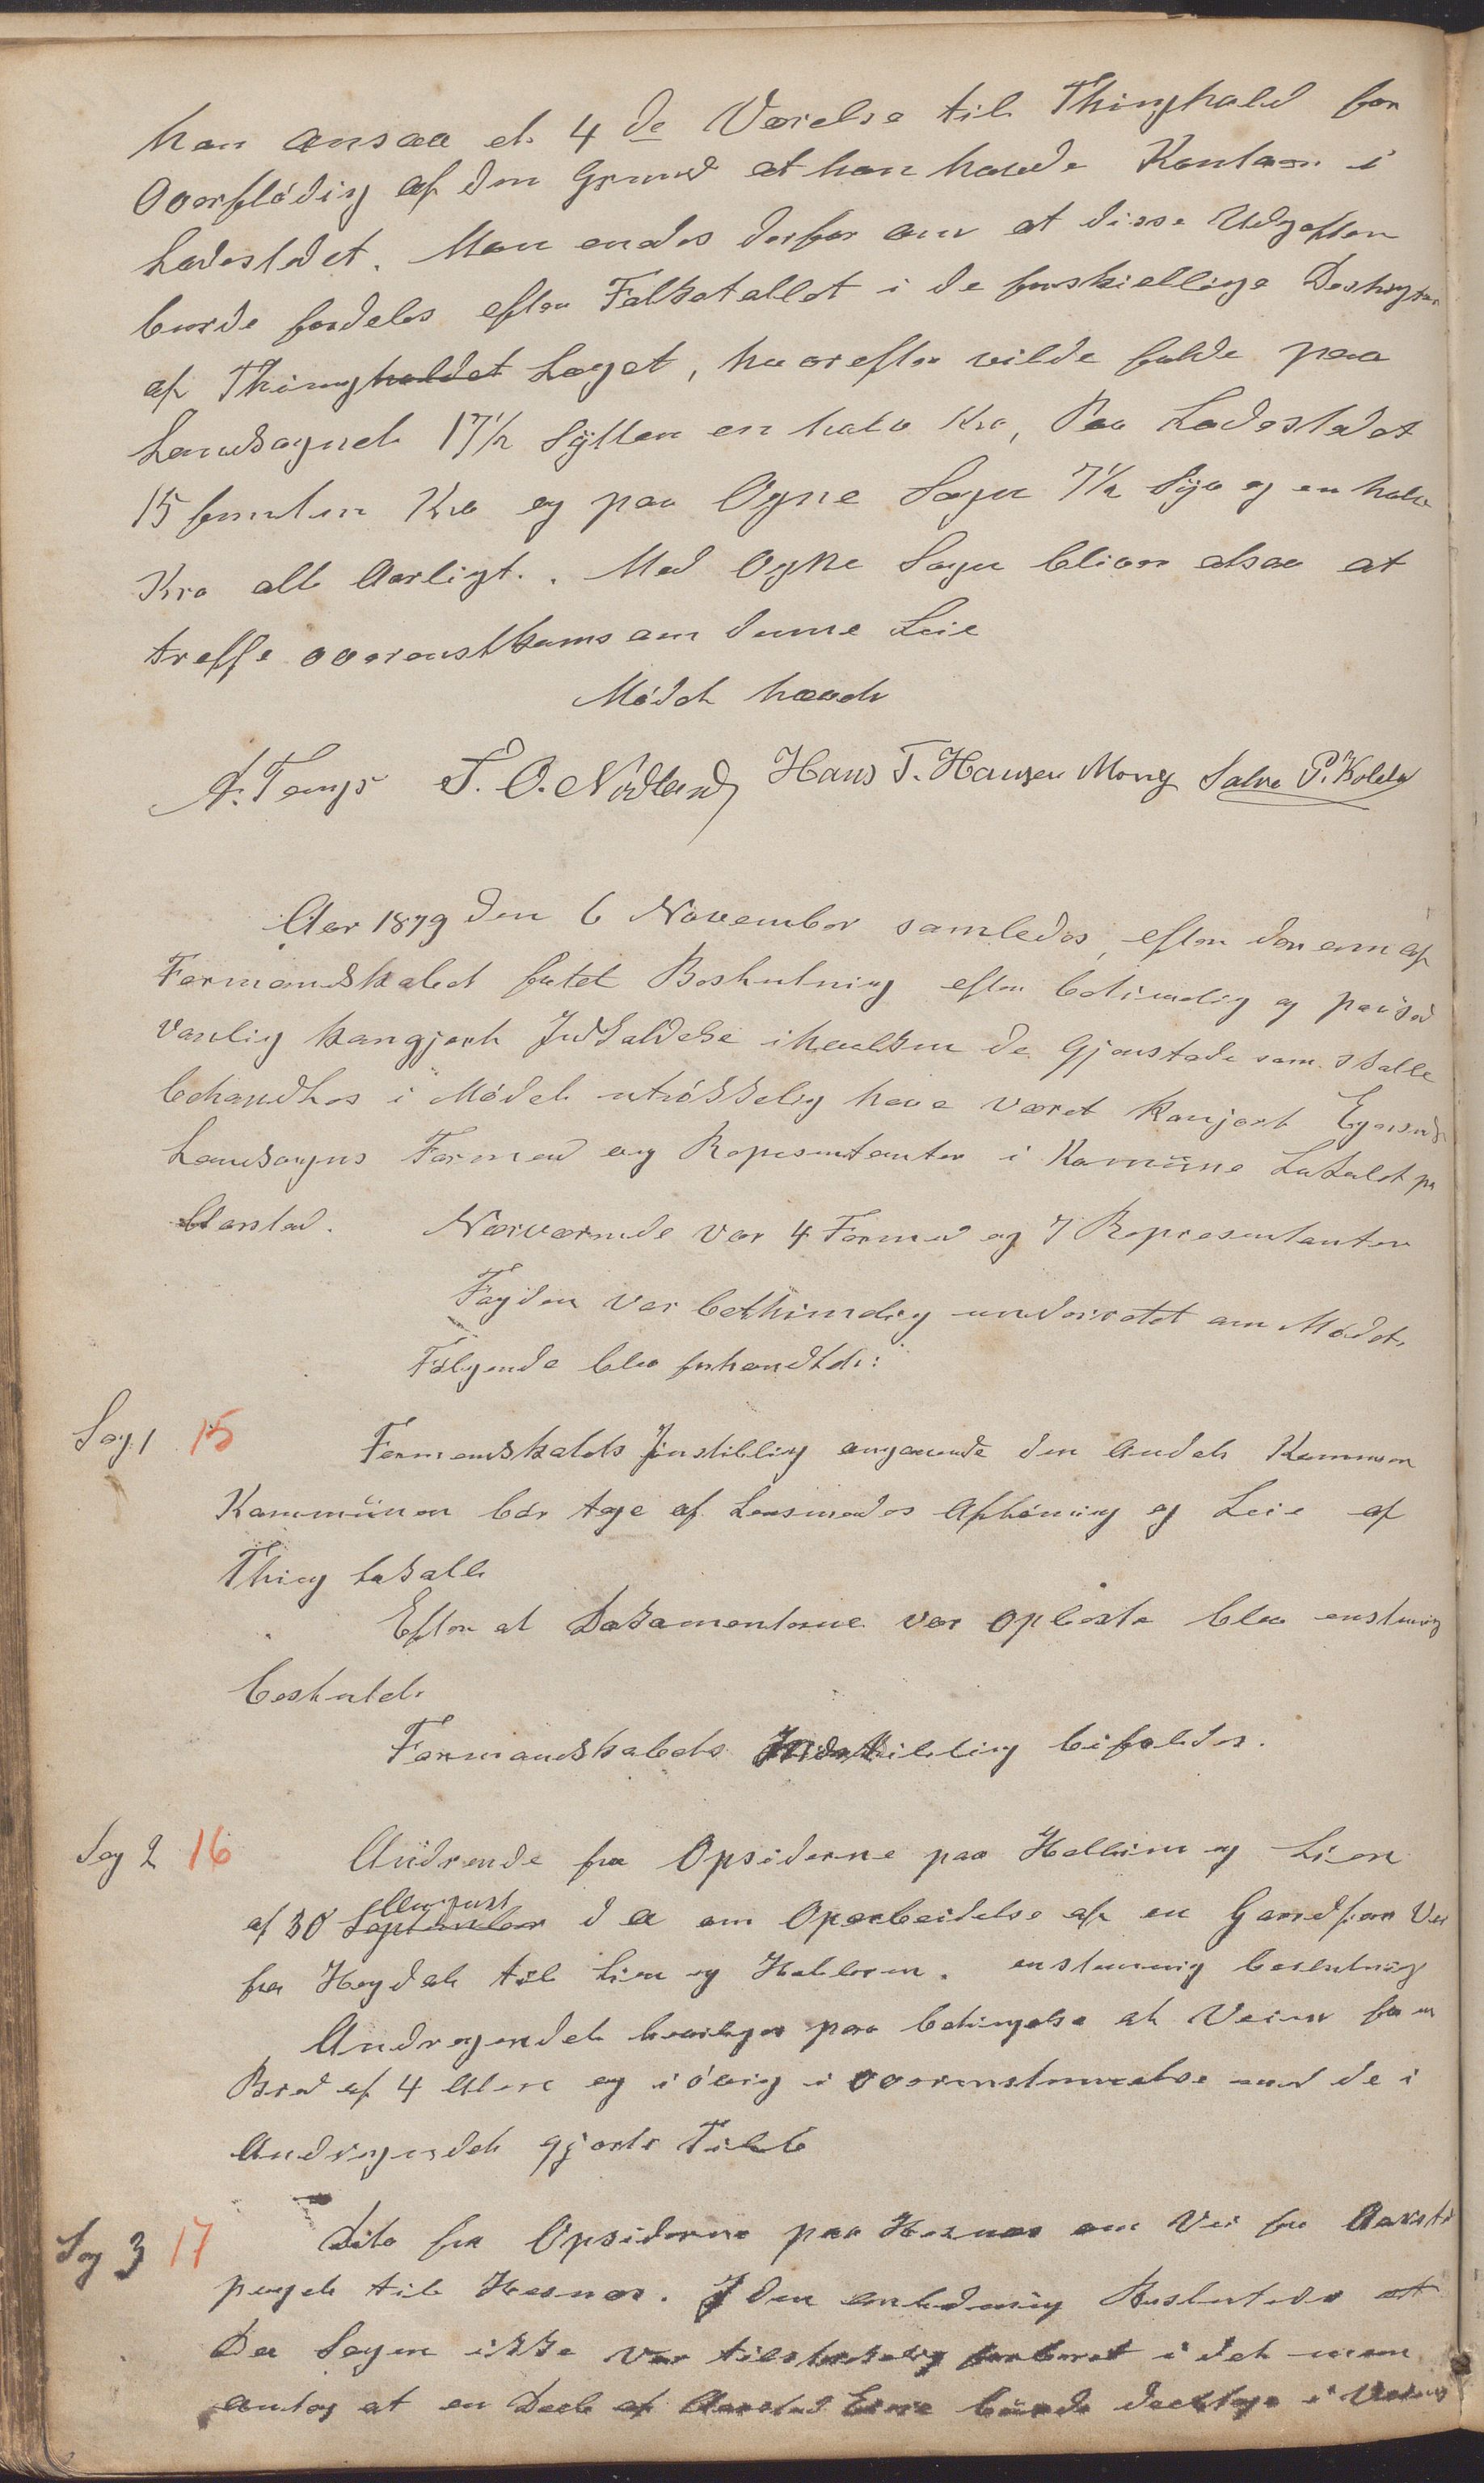 han ansaa et 4de Værelse til Thinghold for
Overflødig af den Grund at han havde Kontor i
Ladestedet. Man enedes derfor om at disse Udgifter
burde fordeles efter Folketallet i de forskiellige Destrigter
af Thingholdet Laget, hvorefter vilde falde paa
Landsognet 17½ Sytten en halv Kro, Paa Ladestedet
15 femten Kro og paa Ogne Sogn 7½ Syv og en halv
Kro alt Aarligt. Med Ogne Sogn bliver ogsaa at
treffe overenstkoms om denne Leie
Mødet hævdt
A. Tengs T. O. Nodland Hans T. Hansen Mong Salve P. Koldal
Aar 1879 den 6 November samledes, efter derom af
Formandskabet fatet Beslutning efter betimelig og paa Sed
vanlig kangjort Indkaldelse i hvilken de Gjenstade som skulle
behandles i Mødet utrøkkelig have været kangjort Egersunds
Landsogns Formend og Represtentanter i Komüne Lokalet paa
Aarstad. Nærværende var 4 Formend og 7 Representanter
Fogden var bethimelig underretet om Mødet,
Følgende blev forhandlet:
Sag 1 15 Formandskabets Jnstilling angaaende den Andel
Kommünen bør tage af Lensmandes Aflønning og Leie af
Thing Lokale
Efter at Dokumenterne var opleste blev enstemig
besluttet.
Formandskabets Indstilling bifaldes.
Sag 2 16 Andrende fra Opsiderne paa Helleren og Lien
af 30 September August d A om Oparbeidelse af en Gaardfær Vei
fra Høgdet til Lien og Helleren. enstemmig beslutning
Andragendet bevilges paa betingelse at Veien faar en
Bred af 4 Alen og i øvrig i Overenstemmelse med de i
Andragendet gjorte Tilb
Sag 3 17 Dito fra Opsiderne paa Hesnes om Vei fra Aarstad
til Hesnes. J den anledning Besluttedes at
Da Sagen ikke var tilstrekkelig forberet i det man
antog at en Deel af Aarstad Eiere bürde deeltage i Veiens